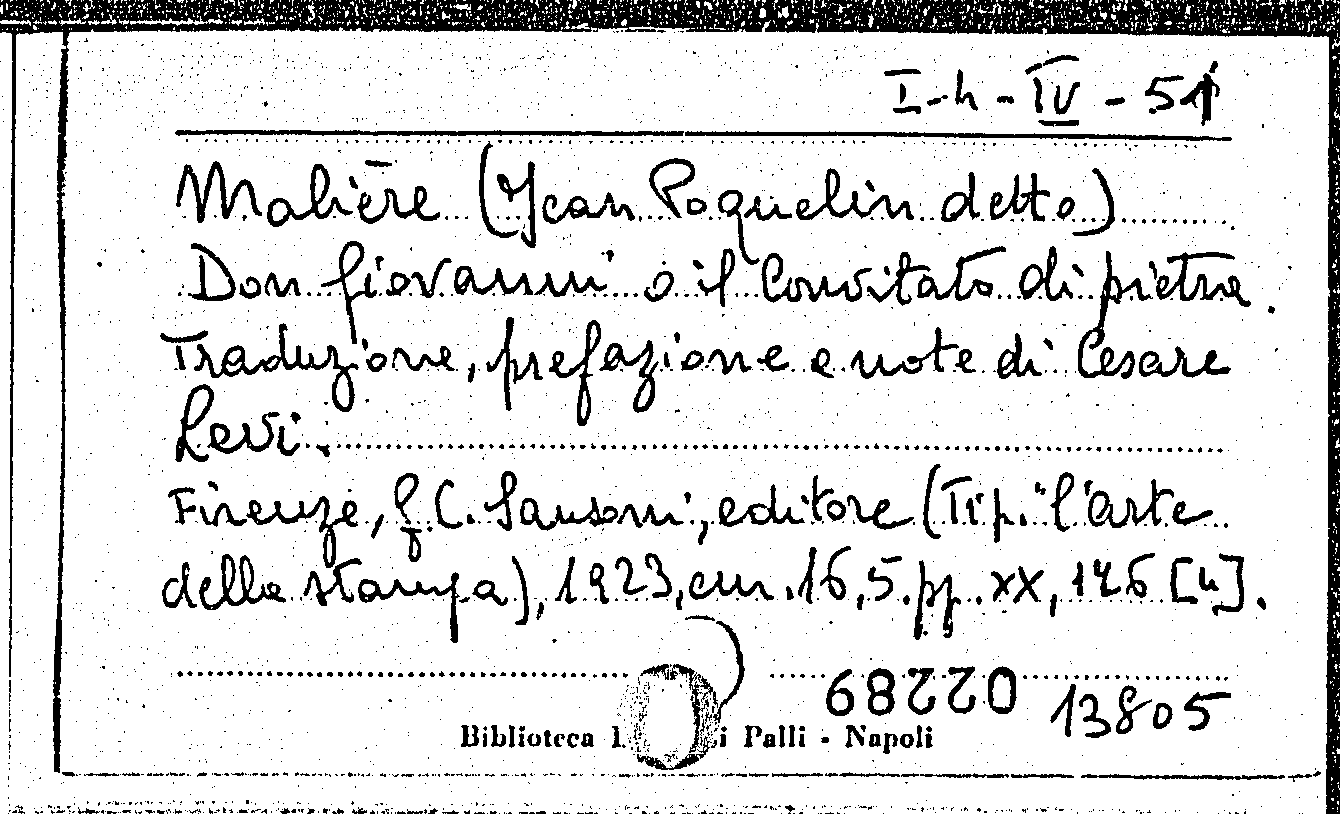 I-h-IV-51
Molière (Jean Poquelin detto)
Don Giovanni o il Convitato di pietra.
Traduzione, prefazione e note di Cesare
Levi.
Firenze, G.C. Sansoni, editore (Tip. "l'arte
della stampa), 1923, cm. 16,5. pp. XX, 146 [4].
68220 13805
Biblioteca Palli - Napoli